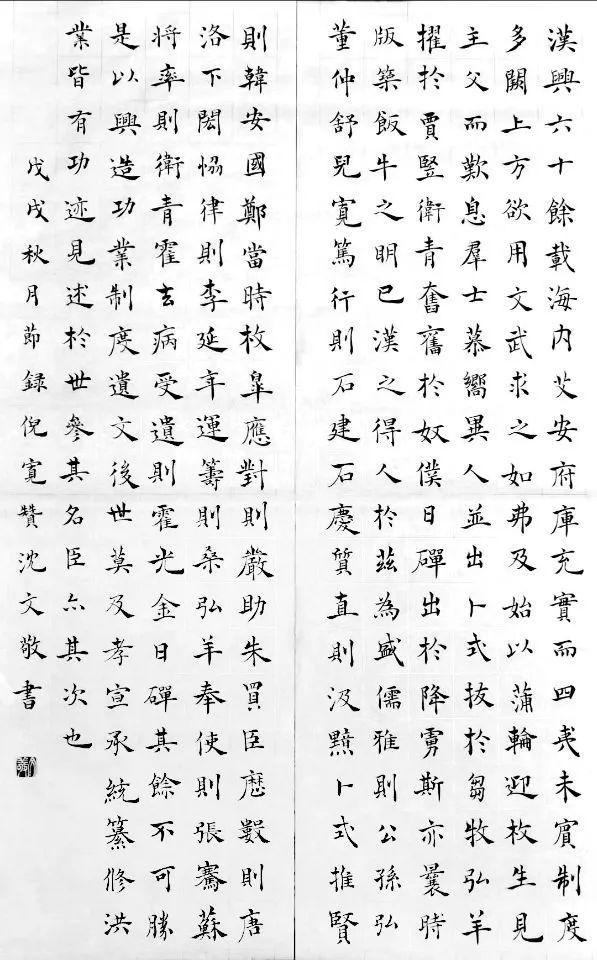 漢興六十餘載海内艾安府庫充實而四夷未賓制度
多闕上方欲用文武求之如弗及始以蒲輪迎枚生見
主父而歎息羣士慕嚮異人並出卜式拔於芻牧弘羊
擢於賈豎衛青奮舊於奴僕日磾出於降虜斯亦曩時
版築飯牛之明已漢之得人於茲為盛儒雅則公孫弘
董仲舒兒寬篤行則石建石慶質直則汲黯卜式推賢
則韓安國鄭當時枚皐應對則嚴助朱買臣歷數則唐
洛下閎恊律則李延年運籌則桑弘羊奉使則張騫蘇
將率則衛青霍去病受遺則霍光金日磾其餘不可勝
是以興造功業制度遺文後世莫及孝宣承統纂修洪
業皆有功迹見述於世參其名臣亦其次也
戊戌秋月節録倪寬贊沈文敬書